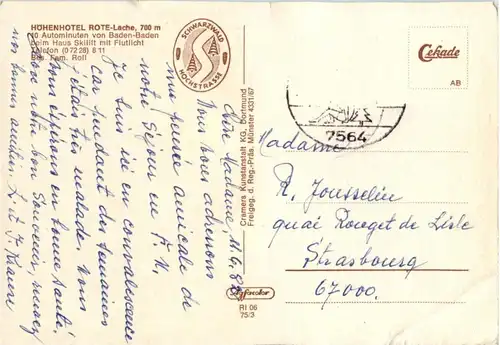 HÖHENHOTEL ROTE-Lache, 780 m
20 Autominuten von Baden-Baden
Beim Haus Skilift mit Flutlicht
Telefon (0 72 28) 8 11
Bes. Fam. Roll
SCHWARZWALD
HOCHSTRASSE
Cekade
AB
7564
Cramers Kunstanstalt KG, Dortmund
Freigeg. d. Reg.-Präs. Münster 4331/67
RI 06
75/3
Chère Madame,
Nous vous adressons
une pensée amicale de
notre séjour en F.N.
Je suis ici en convalescence
car pendant des semaines
j'étais très malade. Nous
vous espérons en bonne santé.
bon Souvenir, recevez
nos bonnes amitiés.
Madame
R. Jousselin
quai Rouget de Lisle
Strasbourg
67000.